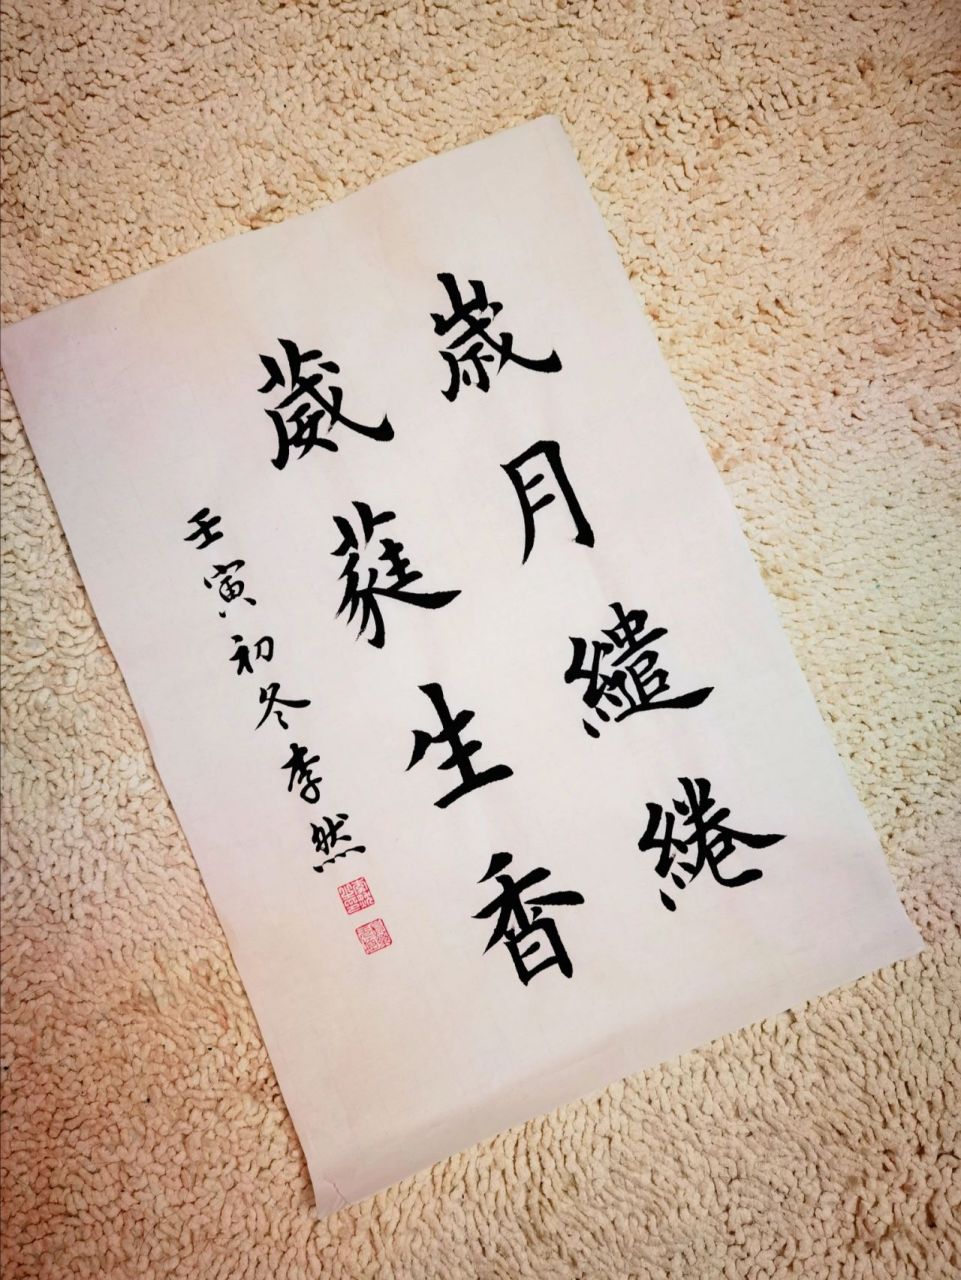 歲月繾綣
葳蕤生香
壬寅初冬李然